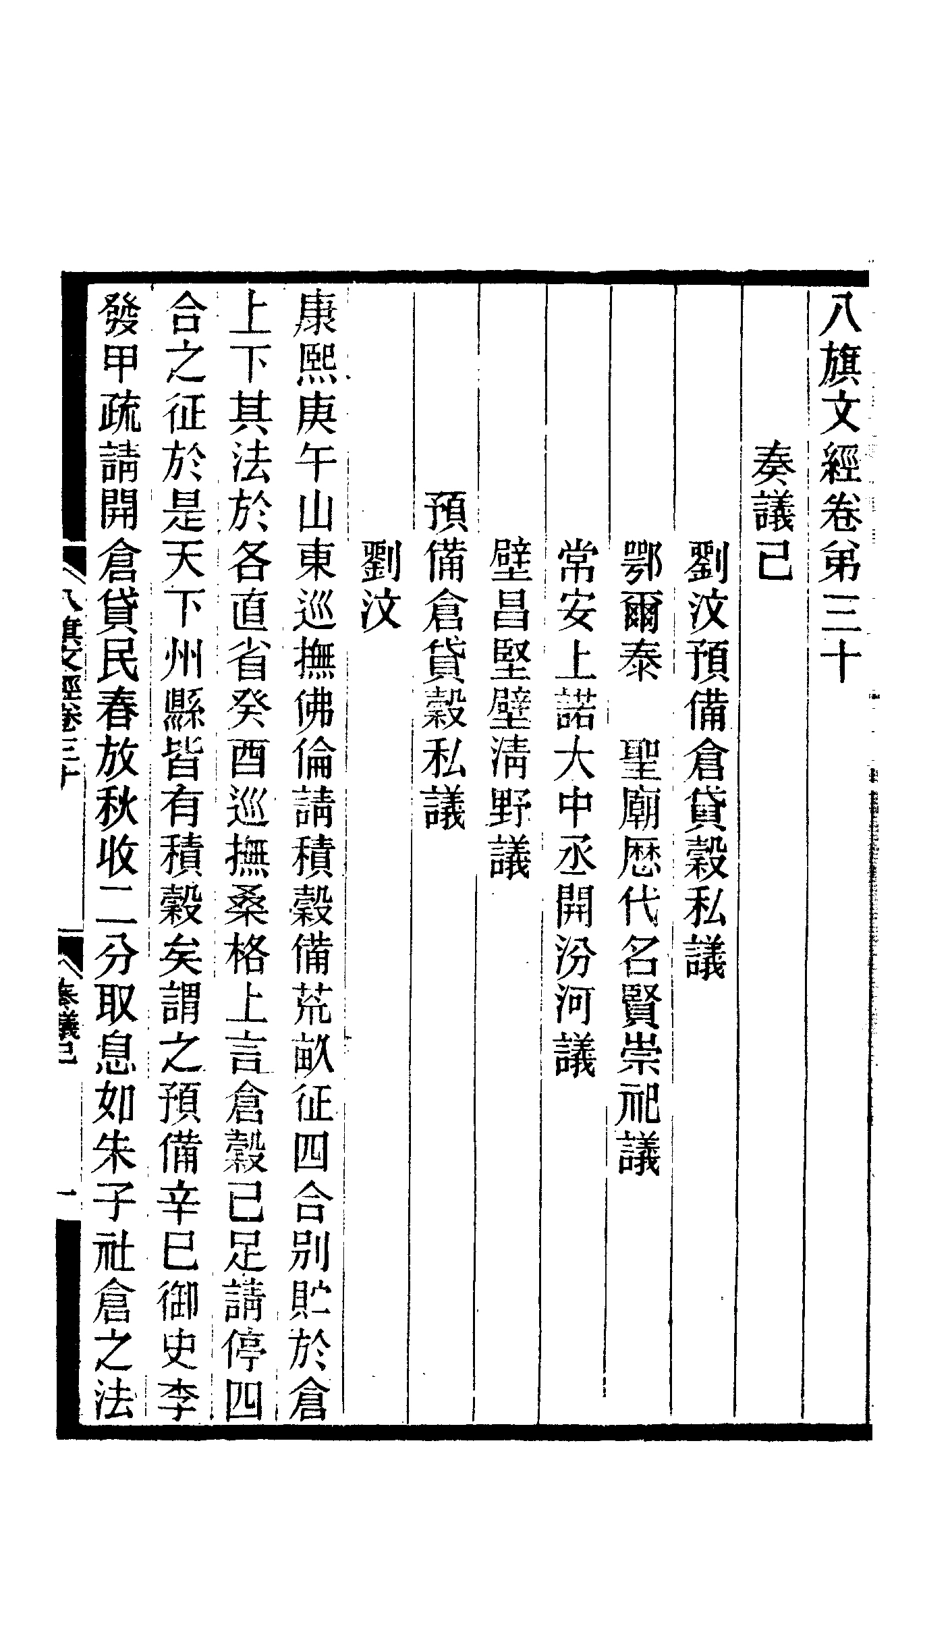 八旗文經卷第三十
奏議己
劉汶預備倉貸穀私議
鄂爾泰　聖廟歷代名賢崇祀議
常安上諾大中丞開汾河議
壁昌堅壁清野議
預備倉貸穀私議
劉汶
康熙庚午山東巡撫佛倫請積穀備荒畝征四合別貯於倉
上下其法於各直省癸酉巡撫桑格上言倉穀已足請停四
合之征於是天下州縣皆有積穀矣謂之預備辛巳御史李
發甲疏請開倉貸民春放秋收二分取息如朱子社倉之法
八旗文經卷三十
奏議己
一